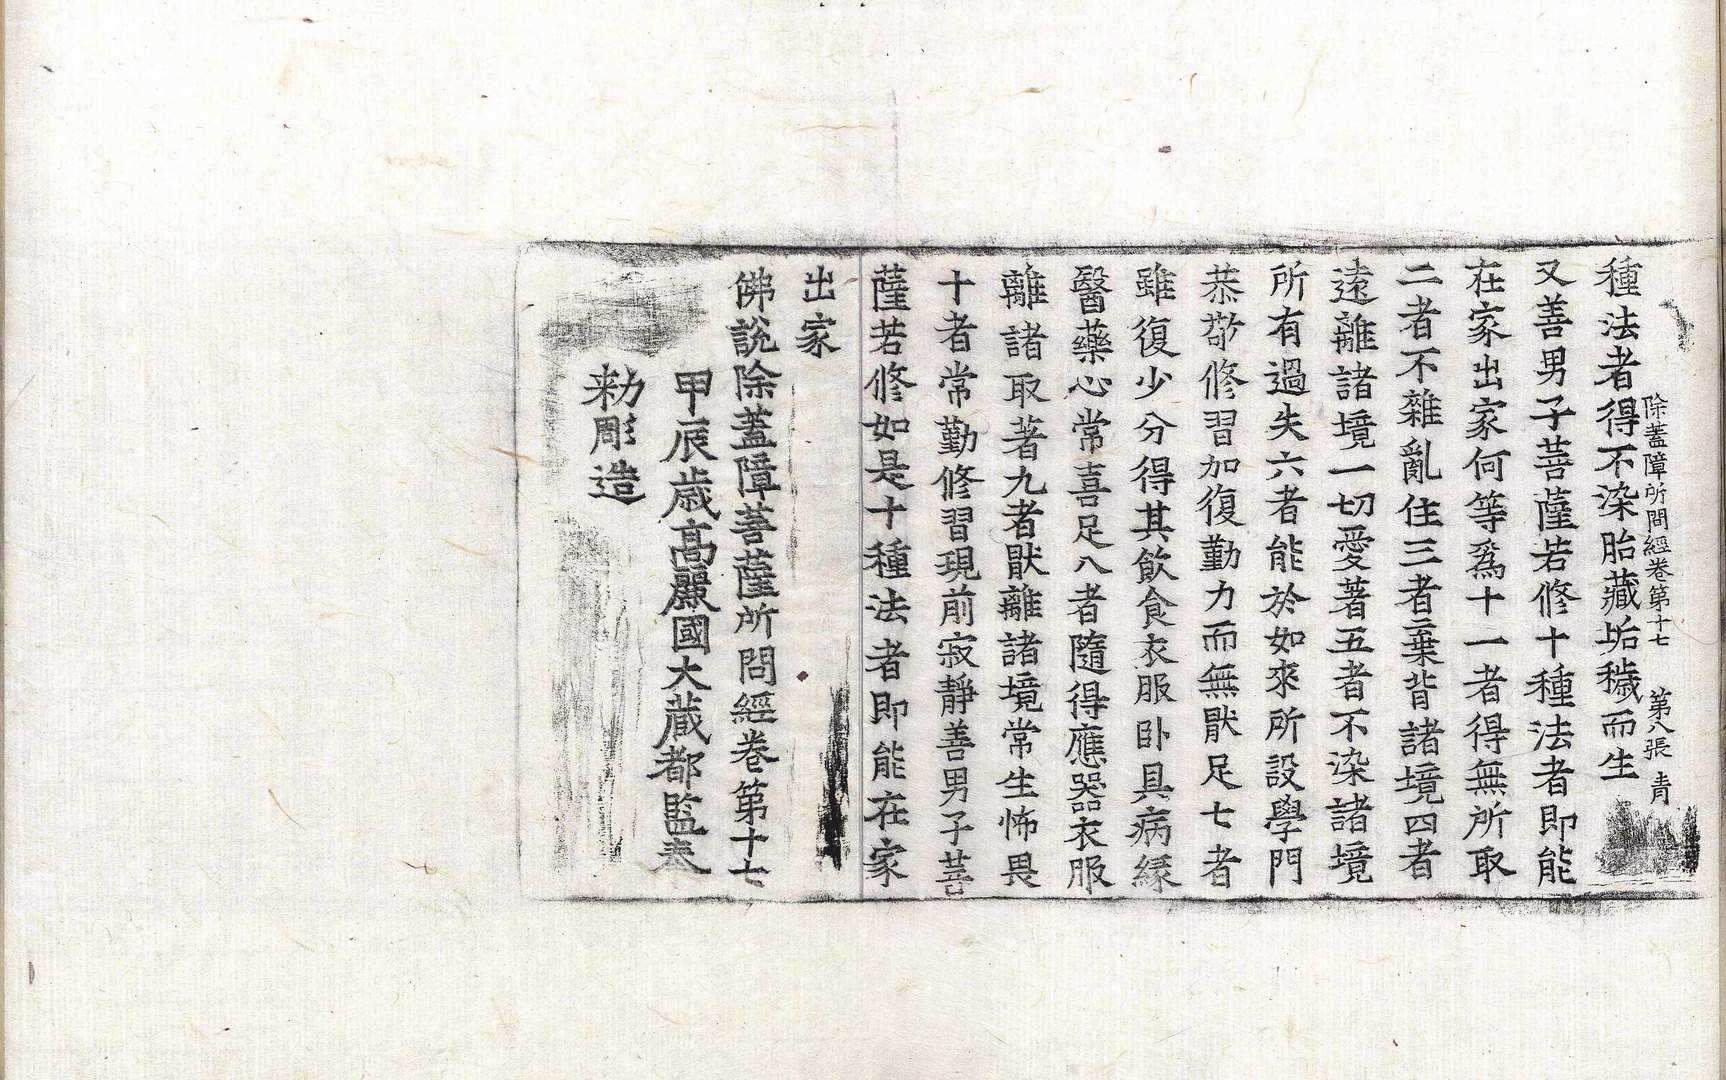 除蓋障所問經卷第十七　第八張　青
種法者得不染胎藏垢穢而生
又善男子菩薩若修十種法者即能
在家出家何等爲十一者得無所取
二者不雜亂住三者棄背諸境四者
遠離諸境一切愛著五者不染諸境
所有過失六者能於如來所設學門
恭敬修習加復勤力而無猒足七者
雖復少分得其飲食衣服卧具病緣
醫藥心常喜足八者隨得應器衣服
離諸取著九者猒離諸境常生怖畏
十者常勤修習現前寂靜善男子菩
薩若修如是十種法者即能在家
出家
佛說除蓋障菩薩所問經卷第十七
甲辰歲高麗國大藏都監奉
勅彫造